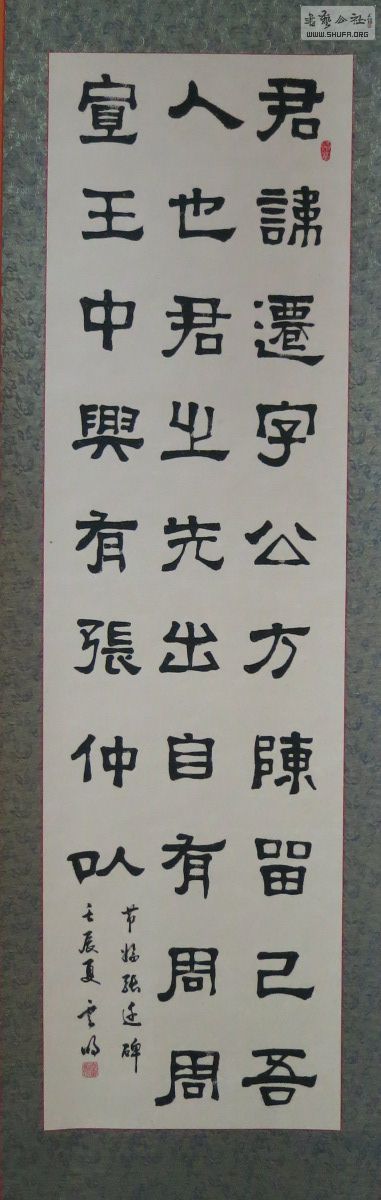 君諱遷字公方陳留己吾
人也君之先出自有周周
宣王中興有張仲以
节临張迁碑
壬辰夏 云明
书艺公社
WWW.SHUFA.ORG